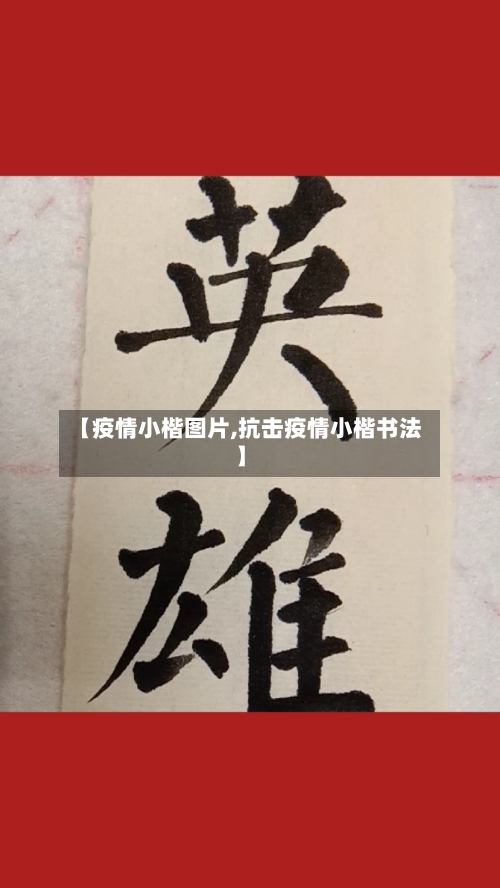 英
【疫情小楷图片,抗击疫情小楷书法
】
雄